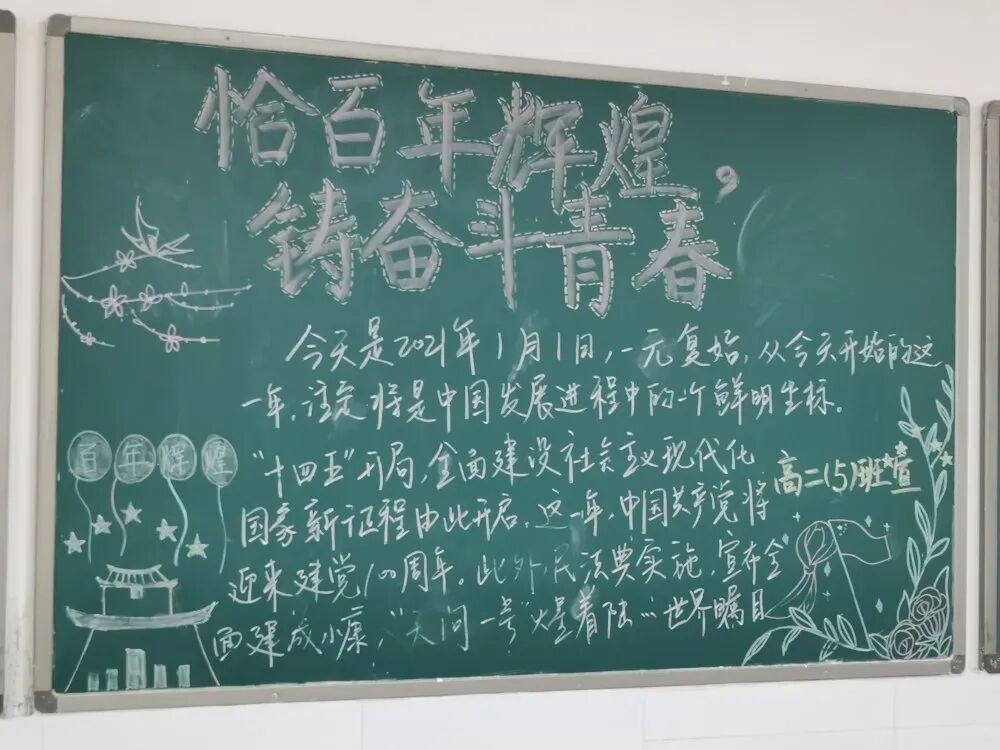 恰百年辉煌，
铸奋斗青春
今天是2021年1月1日，一元复始，从今天开始的这
一年，注定将是中国发展进程中的一个鲜明坐标。
"十四五"开局，全面建设社会主义现代化
国家新征程由此开启。这一年，中国共产党将
迎来建党100周年。此外，民法典实施，宣布全
面建成小康，"天问一号"着陆…世界瞩目
百年辉煌
高二(5)班宣